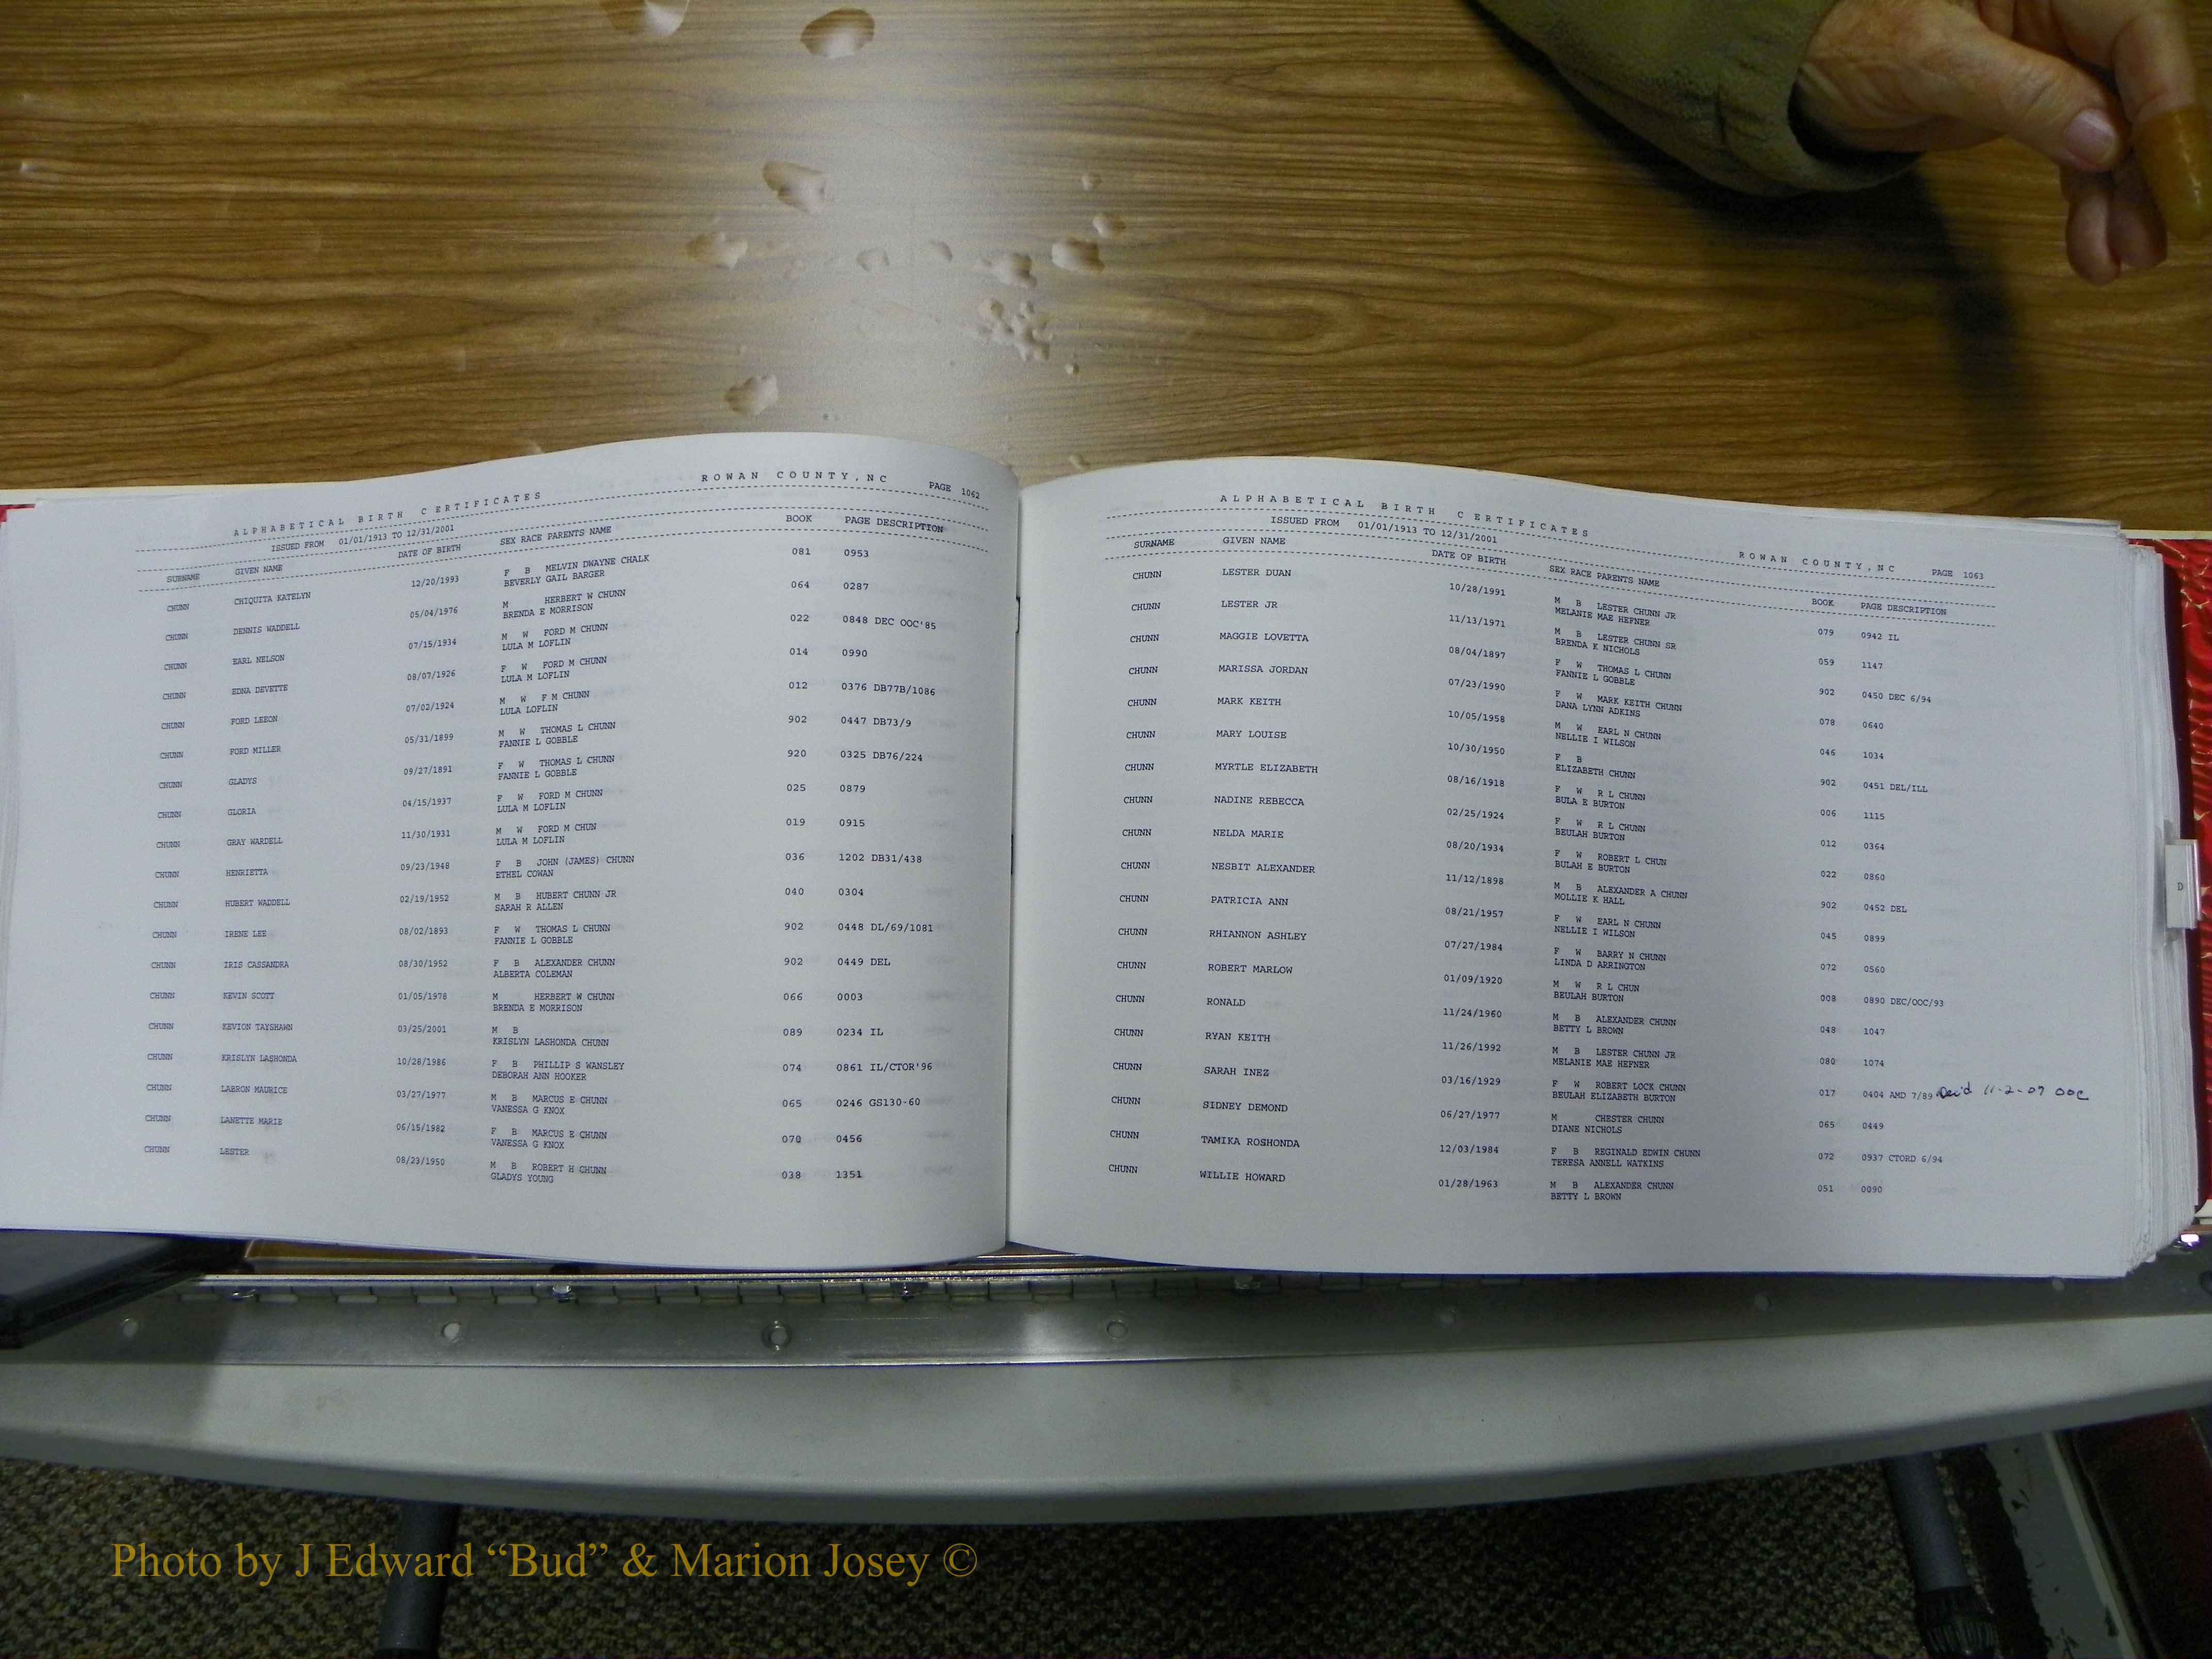 ALPHABETICAL BIRTH CERTIFICATES ROWAN COUNTY,NC PAGE 1062
ISSUED FROM 01/01/1913 TO 12/31/2001
SURNAME GIVEN NAME DATE OF BIRTH SEX RACE PARENTS NAME BOOK PAGE DESCRIPTION
CHUNN CHIQUITA KATELYN 12/20/1993 F B MELVIN DWAYNE CHALK 081 0953
BEVERLY GAIL BARGER
CHUNN DENNIS WADDELL 05/04/1976 M HERBERT W CHUNN 064 0287
BRENDA E MORRISON
CHUNN EARL NELSON 07/15/1934 M W FORD M CHUNN 022 0848 DEC OOC'85
LULA M LOFLIN
CHUNN EDNA DEVETTE 08/07/1926 F W FORD M CHUNN 014 0990
LULA M LOFLIN
CHUNN FORD LEEON 07/02/1924 M W F M CHUNN 012 0376 DB77B/1086
LULA LOFLIN
CHUNN FORD MILLER 05/31/1899 M W THOMAS L CHUNN 902 0447 DB73/9
FANNIE L GOBBLE
CHUNN GLADYS 09/27/1891 F W THOMAS L CHUNN 920 0325 DB76/224
FANNIE L GOBBLE
CHUNN GLORIA 04/15/1937 F W FORD M CHUNN 025 0879
LULA M LOFLIN
CHUNN GRAY WARDELL 11/30/1931 M W FORD M CHUN 019 0915
LULA M LOFLIN
CHUNN HENRIETTA 09/23/1948 F B JOHN (JAMES) CHUNN 036 1202 DB31/438
ETHEL COWAN
CHUNN HUBERT WADDELL 02/19/1952 M B HUBERT CHUNN JR 040 0304
SARAH R ALLEN
CHUNN IRENE LEE 08/02/1893 F W THOMAS L CHUNN 902 0448 DL/69/1081
FANNIE L GOBBLE
CHUNN IRIS CASSANDRA 08/30/1952 F B ALEXANDER CHUNN 902 0449 DEL
ALBERTA COLEMAN
CHUNN KEVIN SCOTT 01/05/1978 M HERBERT W CHUNN 066 0003
BRENDA E MORRISON
CHUNN KEVION TAYSHAWN 03/25/2001 M B 089 0234 IL
KRISLYN LASHONDA CHUNN
CHUNN KRISLYN LASHONDA 10/28/1986 F B PHILLIP S WANSLEY 074 0861 IL/CTOR'96
DEBORAH ANN HOOKER
CHUNN LABRON MAURICE 03/27/1977 M B MARCUS E CHUNN 065 0246 GS130-60
VANESSA G KNOX
CHUNN LANETTE MARIE 06/15/1982 F B MARCUS E CHUNN 070 0456
VANESSA G KNOX
CHUNN LESTER 08/23/1950 M B ROBERT H CHUNN 038 1351
GLADYS YOUNG
ALPHABETICAL BIRTH CERTIFICATES ROWAN COUNTY,NC PAGE 1063
ISSUED FROM 01/01/1913 TO 12/31/2001
SURNAME GIVEN NAME DATE OF BIRTH SEX RACE PARENTS NAME BOOK PAGE DESCRIPTION
CHUNN LESTER DUAN 10/28/1991 M B LESTER CHUNN JR 079 0942 IL
MELANIE MAE HEFNER
CHUNN LESTER JR 11/13/1971 M B LESTER CHUNN SR 059 1147
BRENDA K NICHOLS
CHUNN MAGGIE LOVETTA 08/04/1897 F W THOMAS L CHUNN 902 0450 DEC 6/94
FANNIE L GOBBLE
CHUNN MARISSA JORDAN 07/23/1990 F W MARK KEITH CHUNN 078 0640
DANA LYNN ADKINS
CHUNN MARK KEITH 10/05/1958 M W EARL N CHUNN 046 1034
NELLIE I WILSON
CHUNN MARY LOUISE 10/30/1950 F B 902 0451 DEL/ILL
ELIZABETH CHUNN
CHUNN MYRTLE ELIZABETH 08/16/1918 F W R L CHUNN 006 1115
BULA E BURTON
CHUNN NADINE REBECCA 02/25/1924 F W R L CHUNN 012 0364
BEULAH BURTON
CHUNN NELDA MARIE 08/20/1934 F W ROBERT L CHUN 022 0860
BULAH E BURTON
CHUNN NESBIT ALEXANDER 11/12/1898 M B ALEXANDER A CHUNN 902 0452 DEL
MOLLIE K HALL
CHUNN PATRICIA ANN 08/21/1957 F W EARL N CHUNN 045 0899
NELLIE I WILSON
CHUNN RHIANNON ASHLEY 07/27/1984 F W BARRY N CHUNN 072 0560
LINDA D ARRINGTON
CHUNN ROBERT MARLOW 01/09/1920 M W R L CHUN 008 0890 DEC/OOC/93
BEULAH BURTON
CHUNN RONALD 11/24/1960 M B ALEXANDER CHUNN 048 1047
BETTY L BROWN
CHUNN RYAN KEITH 11/26/1992 M B LESTER CHUNN JR 080 1074
MELANIE MAE HEFNER
CHUNN SARAH INEZ 03/16/1929 F W ROBERT LOCK CHUNN 017 0404 AMD 7/89 Dec'd 11-2-07 OOC
BEULAH ELIZABETH BURTON
CHUNN SIDNEY DEMOND 06/27/1977 M CHESTER CHUNN 065 0449
DIANE NICHOLS
CHUNN TAMIKA ROSHONDA 12/03/1984 F B REGINALD EDWIN CHUNN 072 0937 CTORD 6/94
TERESA ANNELL WATKINS
CHUNN WILLIE HOWARD 01/28/1963 M B ALEXANDER CHUNN 051 0090
BETTY L BROWN
D
Photo by J Edward “Bud” & Marion Josey ©